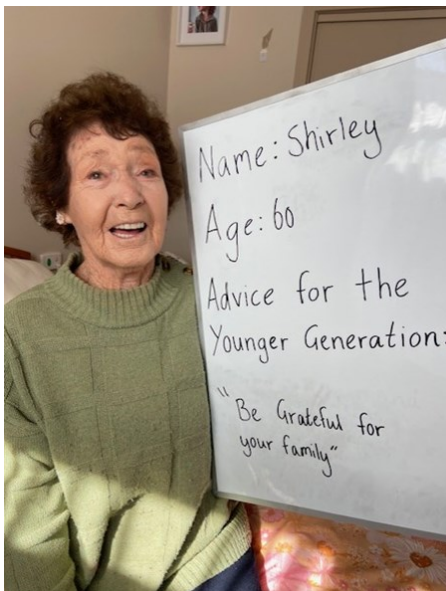 Name: Shirley
Age: 60
Advice for the
Younger Generation:
"Be Grateful for
your family"